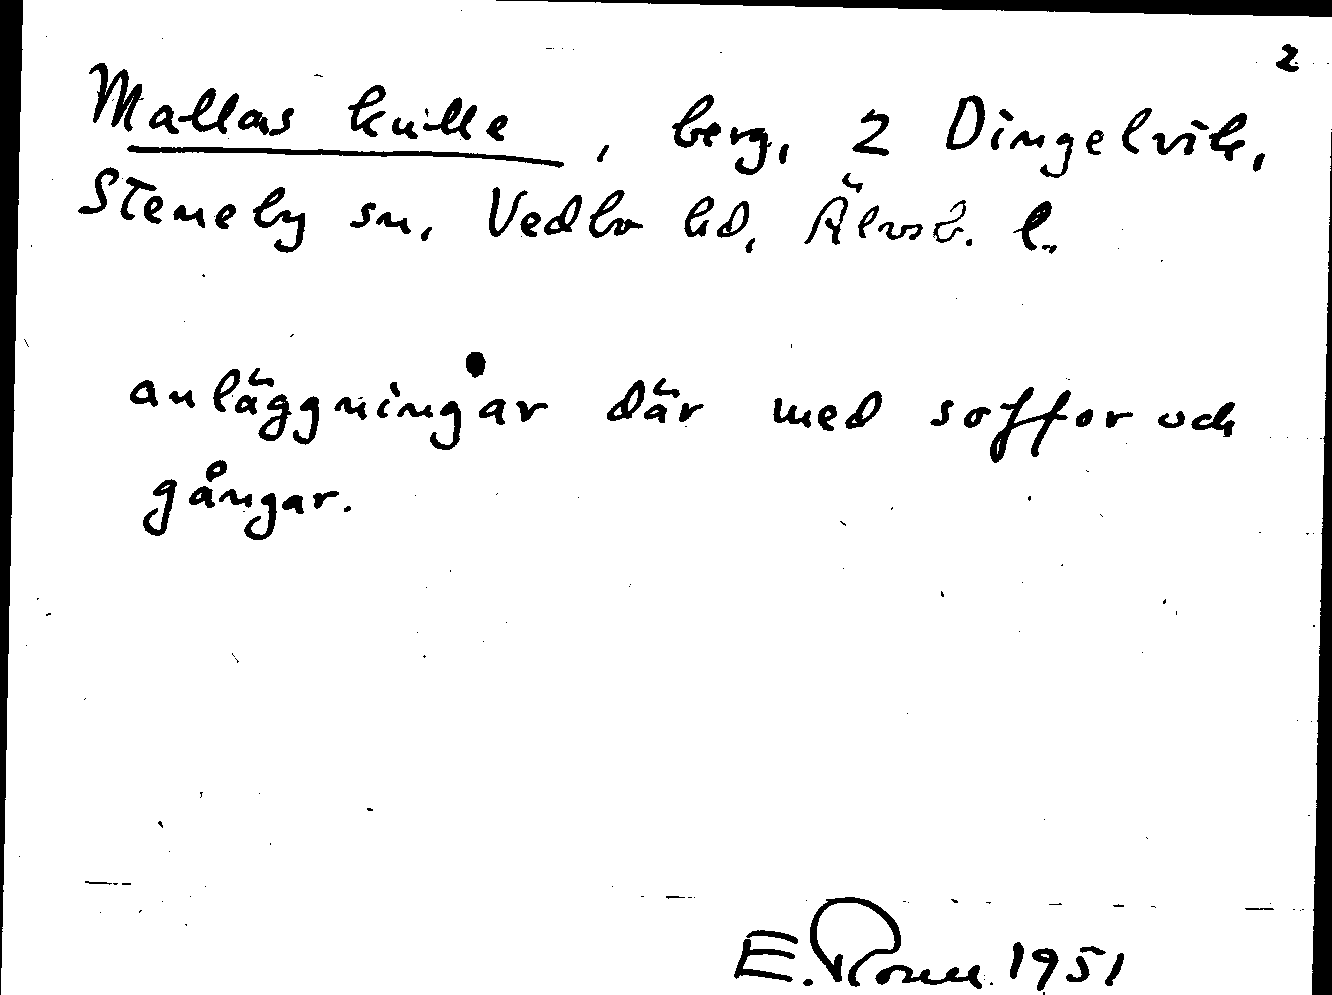 2
Mallas kulle, berg, 2 Dingelvik,
Steneby sn, Vedbo hd, Älvsb. l.
anläggningar där med soffor och
gångar.
E. 1951